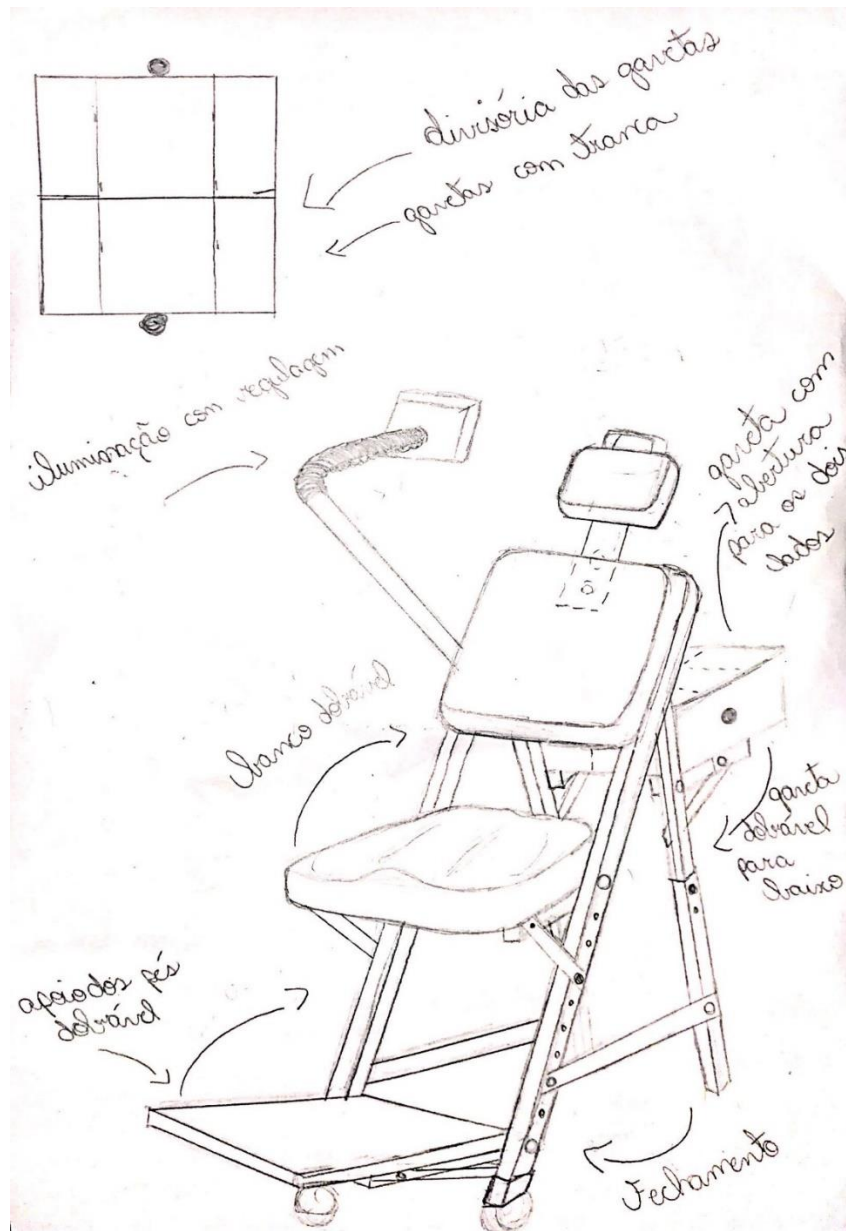 divisória das gavetas
gavetas com tranca
iluminação com regulagem
gaveta com
abertura
para os dois
lados
banco dobrável
gaveta
dobrável
para
baixo
apoio dos pés
dobrável
Fechamento